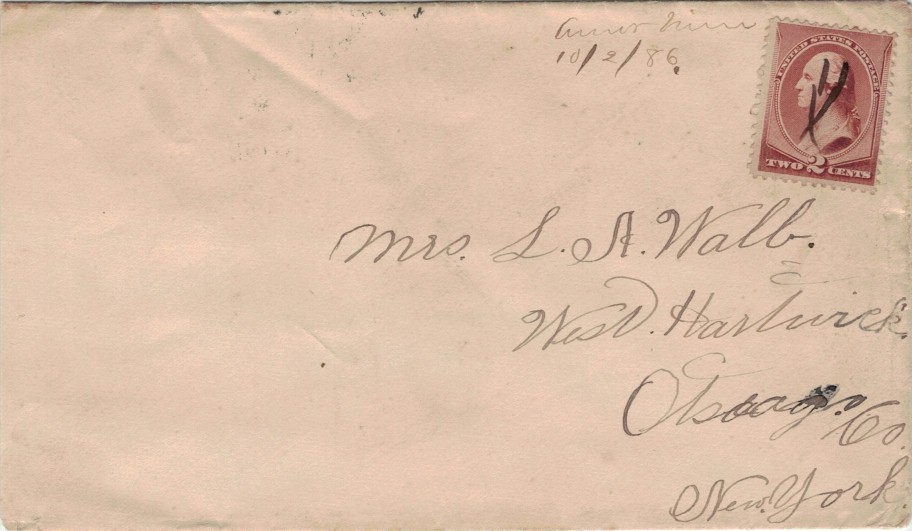 10/2/86.
UNITED STATES POSTAGE
TWO 2 CENTS
Mrs. L. A. Wallb.
West. Hartwick.
Otsego. Co.
New. York.